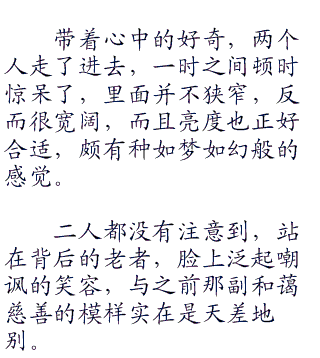 带着心中的好奇，两个
人走了进去，一时之间顿时
惊呆了，里面并不狭窄，反
而很宽阔，而且亮度也正好
合适，颇有种如梦如幻般的
感觉。
二人都没有注意到，站
在背后的老者，脸上泛起嘲
讽的笑容，与之前那副和蔼
慈善的模样实在是天差地
别。